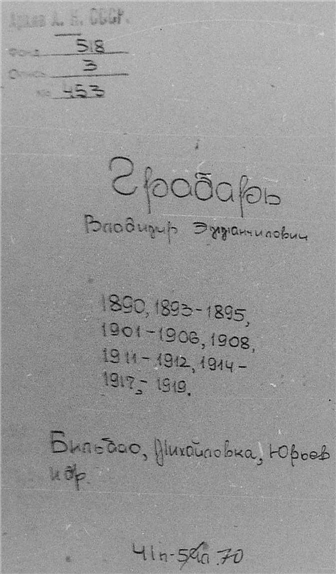 Архив А. Н. СССР.
Фонд 518
Опись 3
№ 453
Грабарь
Владимир Эммануилович
1890, 1893-1895,
1901-1906, 1908,
1911-1912, 1914-
1917,- 1919.
Бильбао, Михайловка, Юрьев
и др.